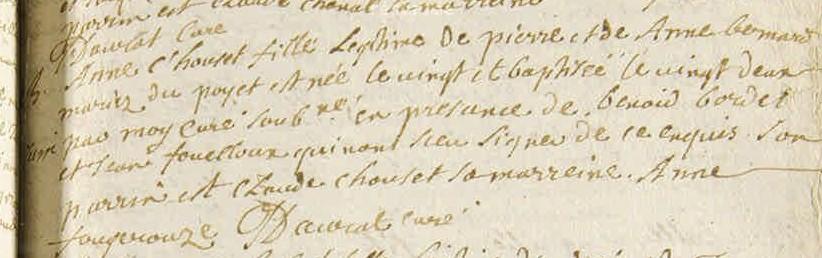 parrin est claude chenal sa marreine
Dauvat Curé
B. Anne Chouset fille Legitime De pierre et de Anne bernard
mariez du poyet est née le vingt et baptisée le vingt deux
par moy curé soub.né en presance de benoid bordet
et Jean fouilloux qui nont sceu signer de ce enquis son
parrin est Claude Chouset sa marreine Anne
fougerouze Dauvat curé